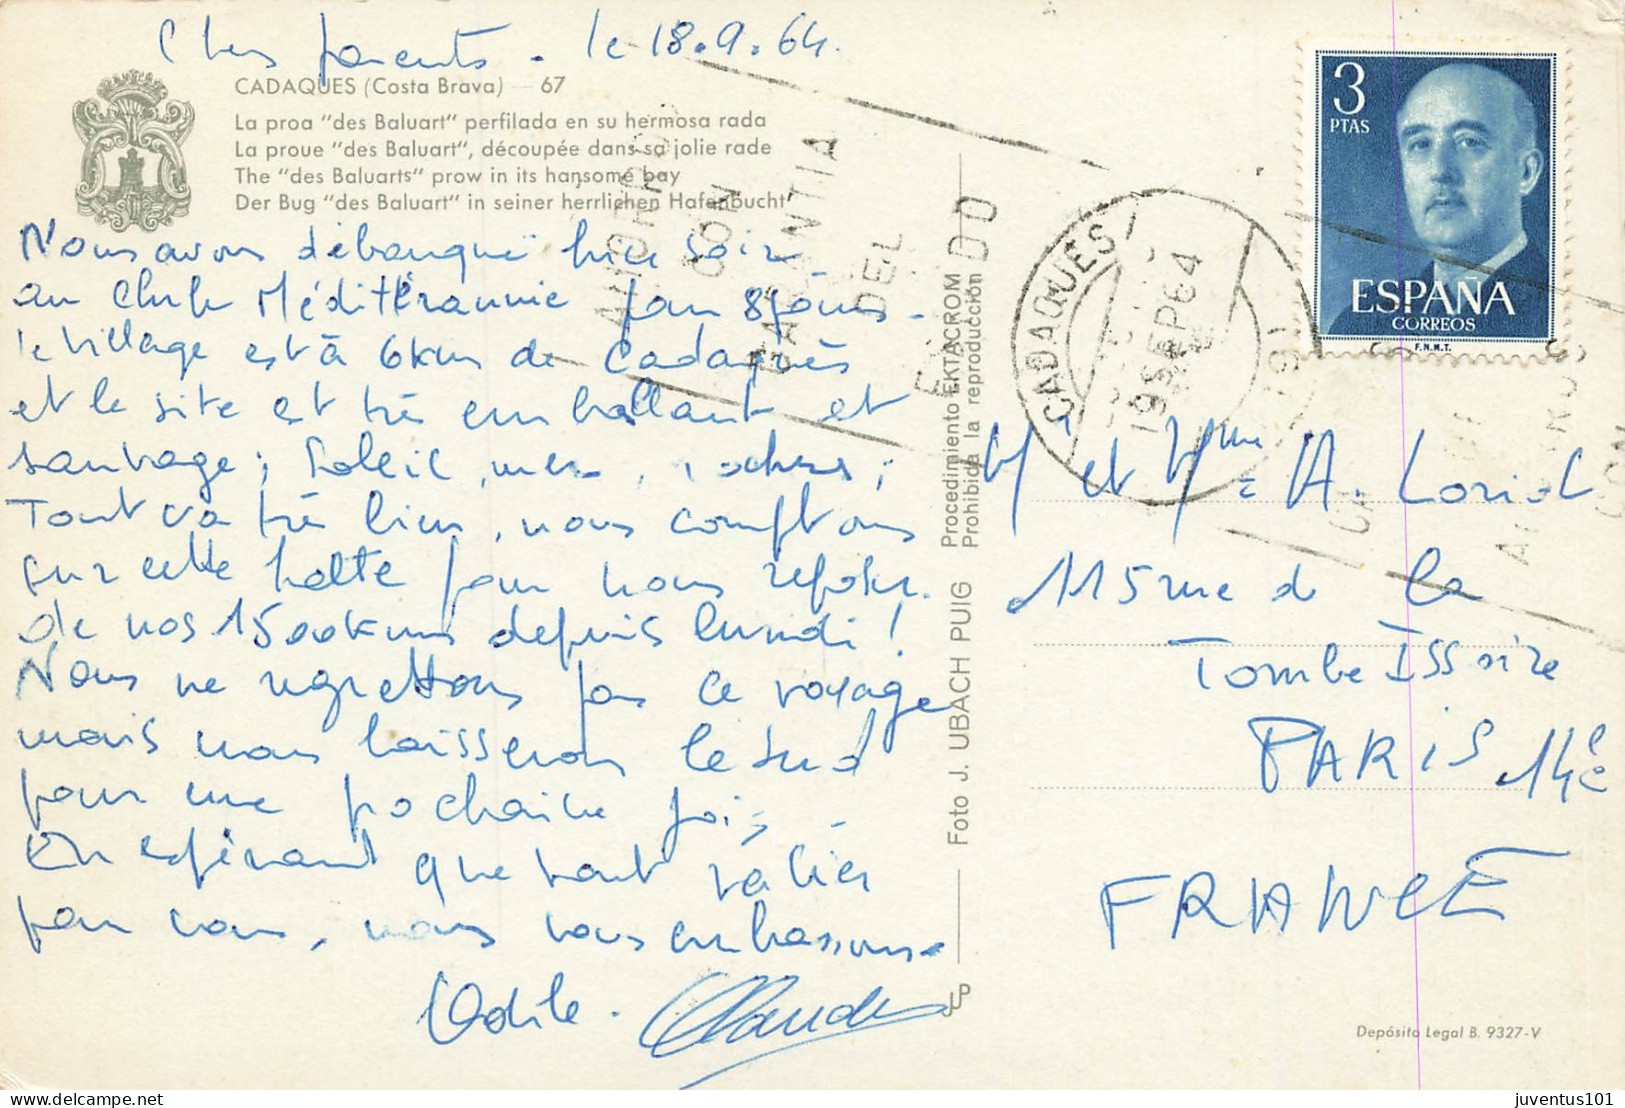 Chers parents. le 18.9.64.
CADAQUES (Costa Brava) — 67
La proa "des Baluart" perfilada en su hermosa rada
La proue "des Baluart", découpée dans sa jolie rade
The "des Baluarts" prow in its hansome bay
Der Bug "des Baluart" in seiner herrlichen Hafenbucht
Nous avons débarqué hier soir
au Club Méditérannée pour 8 jours.
le village est à 6 kms de Cadaquès
et le site est très emballant et
sauvage ; Soleil, mer, rochers ;
Tout va très bien, nous comptons
sur cette halte pour nous reposer
de nos 1500 kms depuis lundi !
Nous ne regrettons pas ce voyage
mais nous laisserons le Sud
pour une prochaine fois.
En espérant que tout va bien
pour vous, nous vous embrassons.
Odile. Claude
AHORRO
CON
GARANTIA
DEL
ESTADO
Procedimiento EKTACROM
Prohibida la reproducción
Foto J. UBACH PUIG
JUP
CADAQUES
19 SEP 64
3
PTAS
ESPAÑA
CORREOS
F.N.M.T.
M et Mme A. Loriot
115 rue de la
Tombe Issoire
PARIS 14e
FRANCE
Depósito Legal B. 9327-V
delcampe.net
juventus101